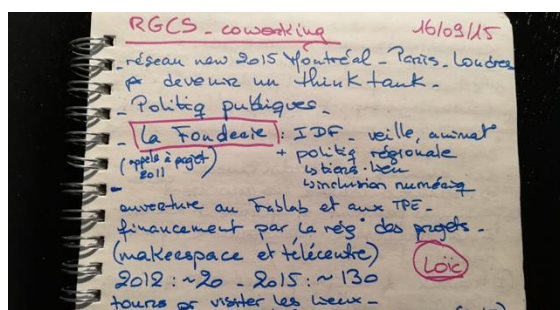 RGCS - coworking 16/09/15
- réseau new 2015 Montréal - Paris - Londres
devenir un think tank -
- Politiq publiques -
- La Fonderie : IDF - veille, animat°
(appels à projet + politiq régionale
2011) ↳ tiers-lieu
↳ inclusion numériq
- ouverture au Fablab et aux TPE -
financement par la rég° des projets -
(makerspace et télécentre) Loïc
2012 : ~20 - 2015 : ~130
tours pr visiter les lieux -